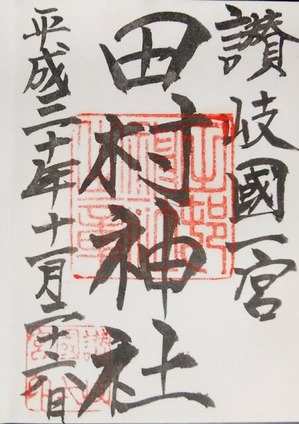 讃岐國一宮
田村神社
平成三十年十一月二十六日